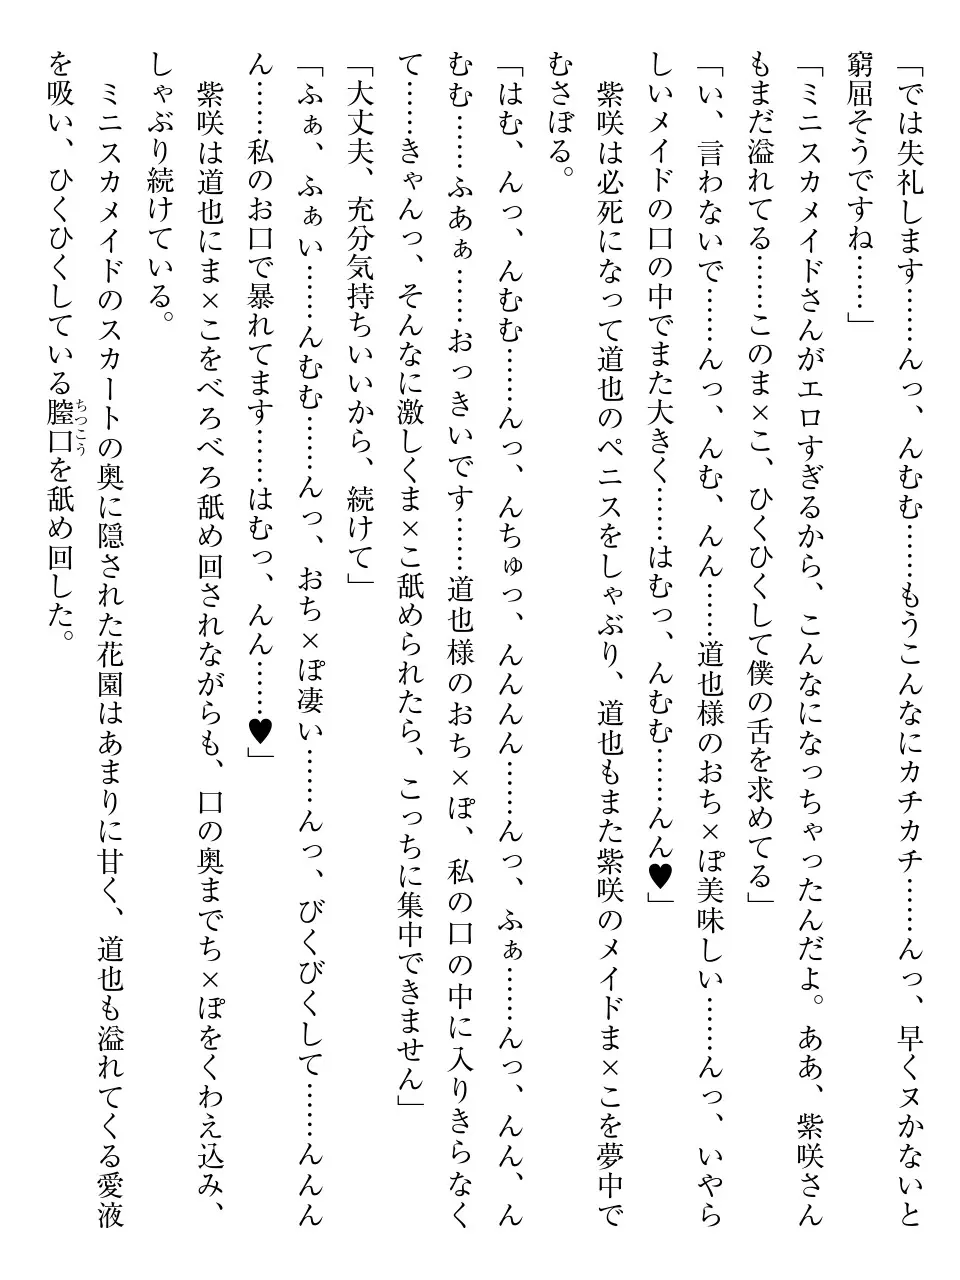 「では失礼します……んっ、んむむ……もうこんなにカチカチ……んっ、早くヌかないと
窮屈そうですね……」
「ミニスカメイドさんがエロすぎるから、こんなになっちゃったんだよ。ああ、紫咲さん
もまだ溢れてる……このま×こ、ひくひくして僕の舌を求めてる」
「い、言わないで……んっ、んむ、んん……道也様のおち×ぽ美味しい……んっ、いやら
しいメイドの口の中でまた大きく……はむっ、んむむ……んん♥」
　紫咲は必死になって道也のペニスをしゃぶり、道也もまた紫咲のメイドま×こを夢中で
むさぼる。
「はむ、んっ、んむむ……んっ、んちゅっ、んんんん……んっ、ふぁ……んっ、んん、ん
むむ……ふあぁ……おっきいです……道也様のおち×ぽ、私の口の中に入りきらなく
て……きゃんっ、そんなに激しくま×こ舐められたら、こっちに集中できません」
「大丈夫、充分気持ちいいから、続けて」
「ふぁ、ふぁい……んむむ……んっ、おち×ぽ凄い……んっ、びくびくして……んんん
ん……私のお口で暴れてます……はむっ、んん……♥」
　紫咲は道也にま×こをべろべろ舐め回されながらも、口の奥までち×ぽをくわえ込み、
しゃぶり続けている。
　ミニスカメイドのスカートの奥に隠された花園はあまりに甘く、道也も溢れてくる愛液
を吸い、ひくひくしている膣口を舐め回した。
ちつこう